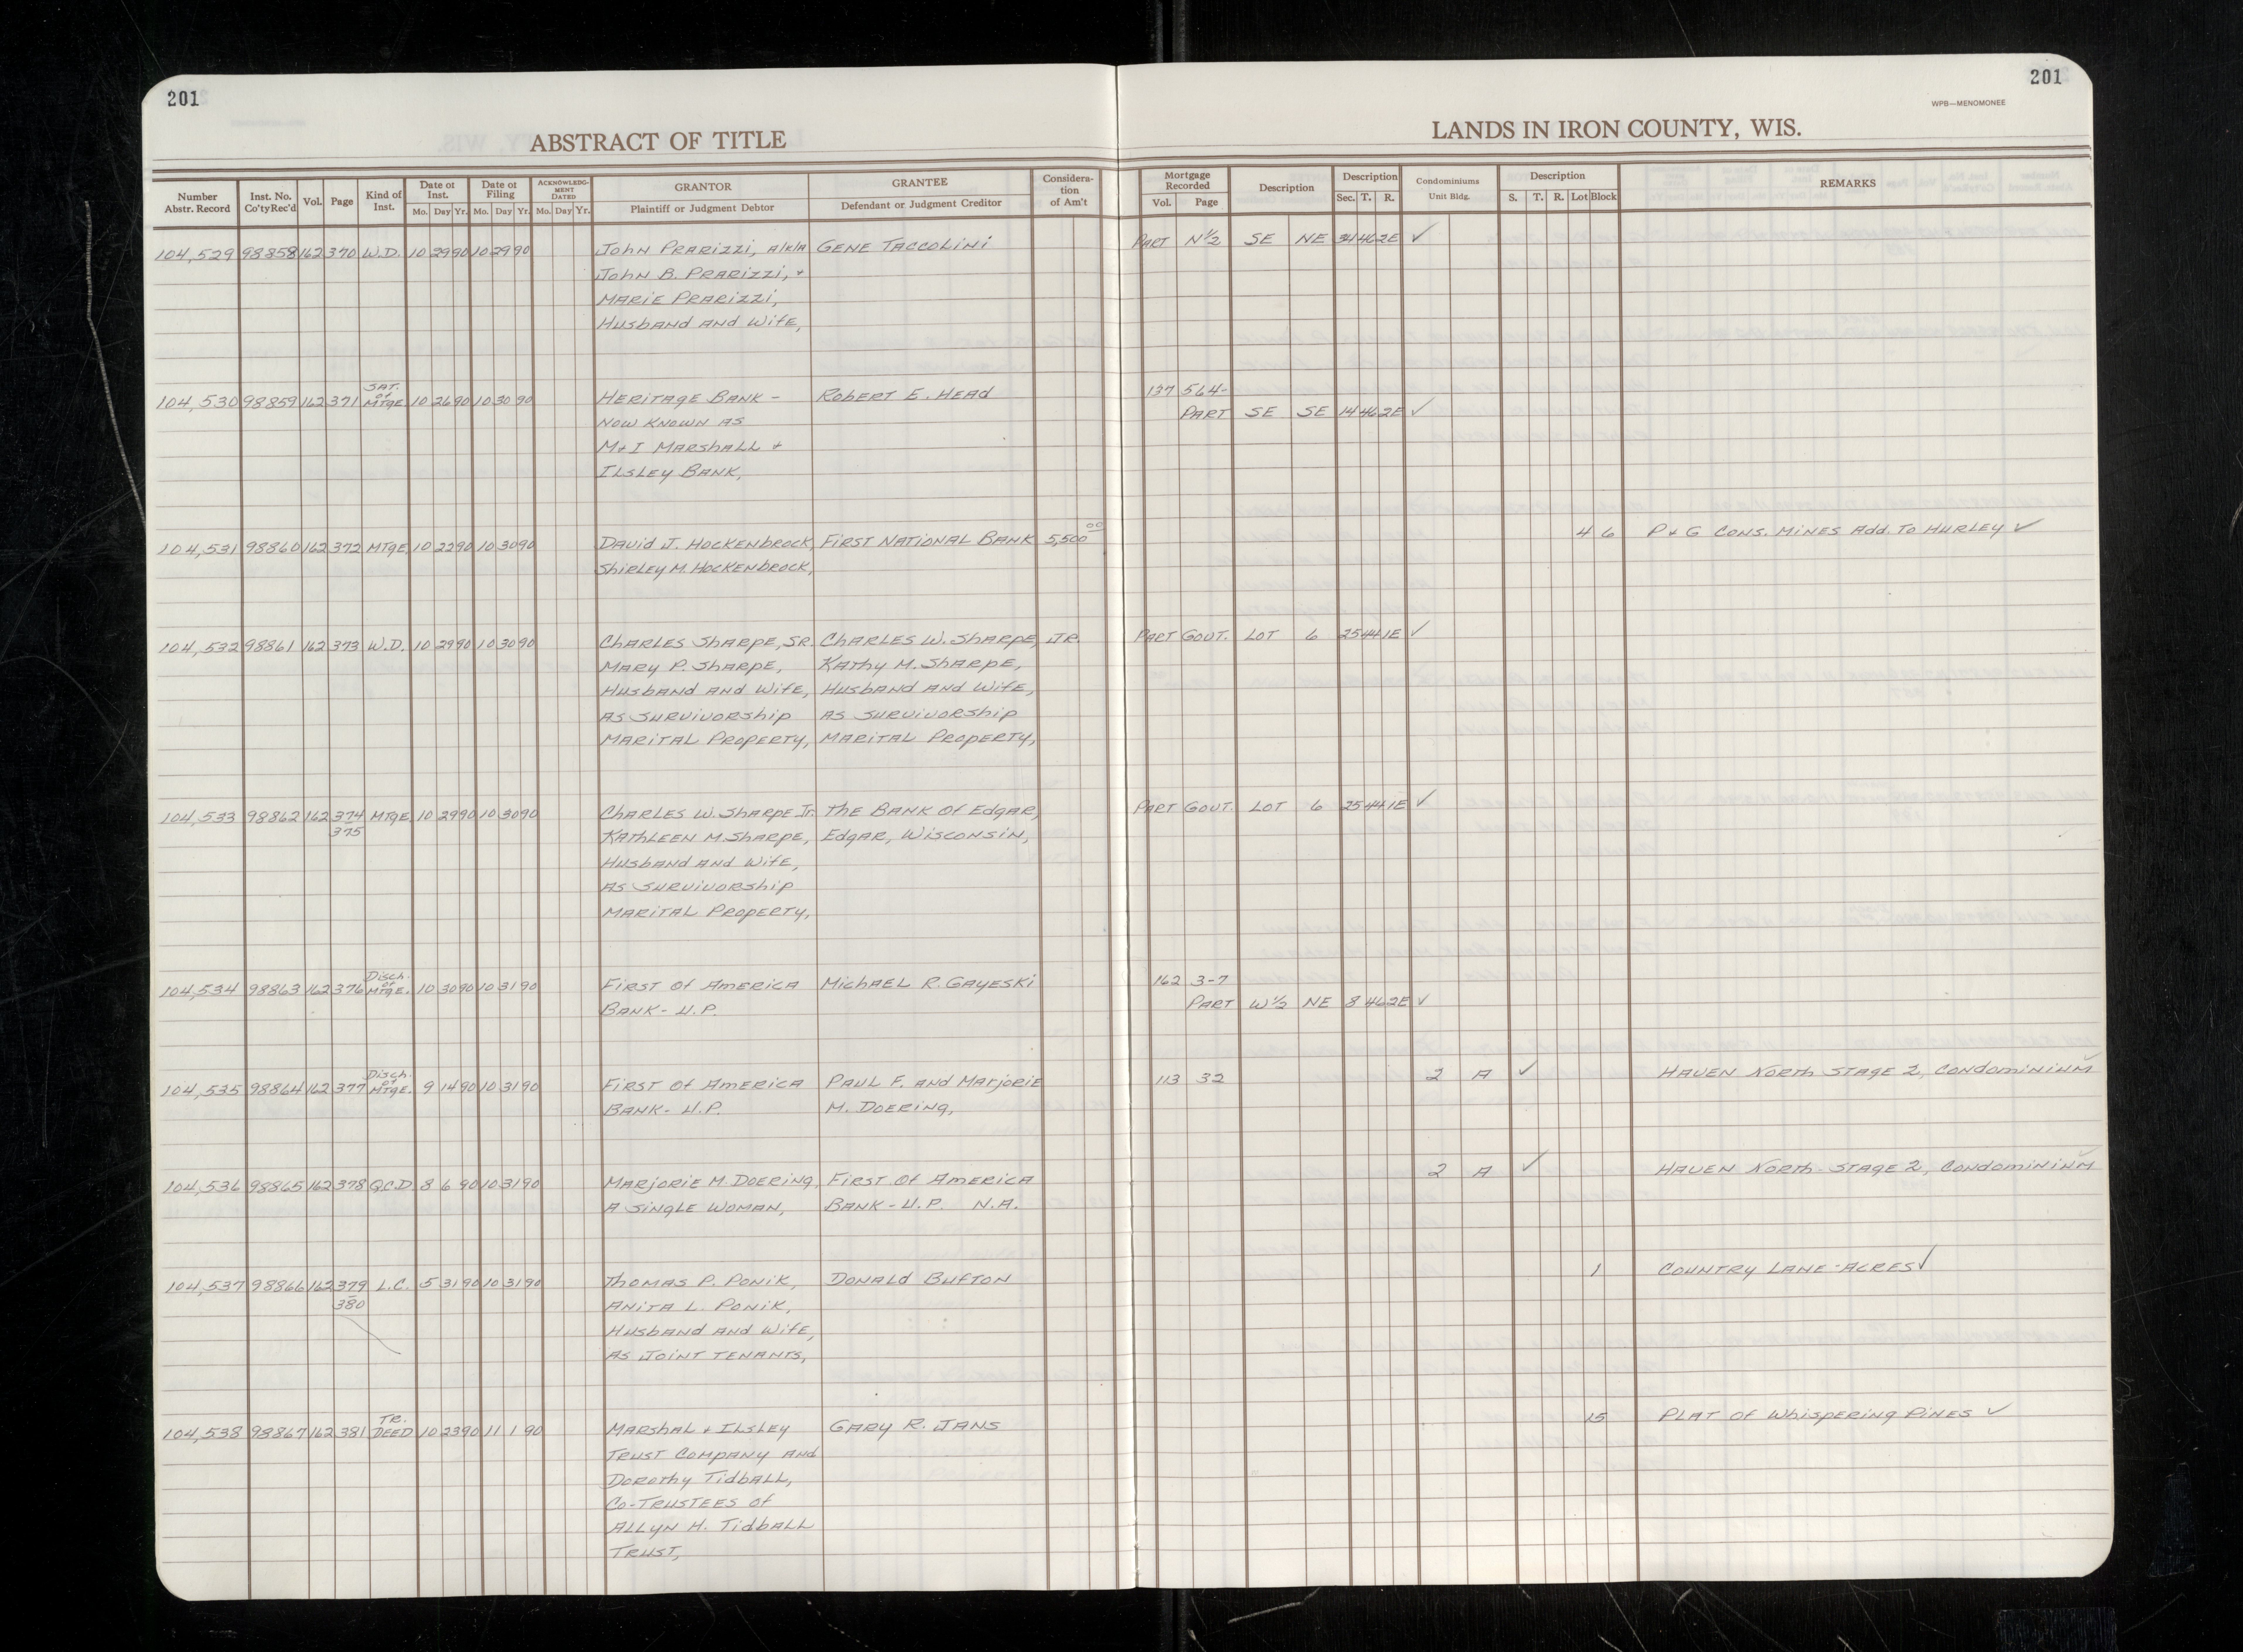 201
201
WPB—MENOMONEE
ABSTRACT OF TITLE
LANDS IN IRON COUNTY, WIS.
Number Abstr. Record | Inst. No. Co'ty Rec'd | Vol. | Page | Kind of Inst. | Date of Inst. Mo. Day Yr. | Date of Filing Mo. Day Yr. | ACKNOWLEDG-MENT DATED Mo. Day Yr. | GRANTOR Plaintiff or Judgment Debtor | GRANTEE Defendant or Judgment Creditor | Considera-tion of Am't | Mortgage Recorded Vol. Page | Description | Description Sec. T. R. | Condominiums Unit Bldg. | Description S. T. R. Lot Block | REMARKS
104,529 98858 162 370 W.D. 10 29 90 10 29 90 John Prarizzi, a/k/a Gene Taccolini PART N½ SE NE 34 46 2E ✓
John B. Prarizzi, +
Marie Prarizzi,
Husband and Wife,
104,530 98859 162 371 SAT. of MTGE. 10 26 90 10 30 90 Heritage Bank - Robert E. Head 137 564-
now known as PART SE SE 14 46 2E ✓
M+I Marshall +
Ilsley Bank,
104,531 98860 162 372 MTGE. 10 22 90 10 30 90 David J. Hockenbrock, First National Bank 5,500 00 4 6 P + G Cons. Mines Add. To Hurley ✓
Shirley M. Hockenbrock,
104,532 98861 162 373 W.D. 10 29 90 10 30 90 Charles Sharpe, Sr. Charles W. Sharpe, Jr. PART GOVT. LOT 6 25 44 1E ✓
Mary P. Sharpe, Kathy M. Sharpe,
Husband and Wife, Husband and Wife,
As Survivorship As Survivorship
Marital Property, Marital Property,
104,533 98862 162 374 MTGE. 10 29 90 10 30 90 Charles W. Sharpe Jr. The Bank of Edgar, PART GOVT. LOT 6 25 44 1E ✓
375 Kathleen M. Sharpe, Edgar, Wisconsin,
Husband and Wife,
As Survivorship
Marital Property,
104,534 98863 162 376 Disch. of MTGE. 10 30 90 10 31 90 First of America Michael R. Gayeski 162 3-7
Bank - U.P. PART W½ NE 8 46 2E ✓
104,535 98864 162 377 Disch. of MTGE. 9 14 90 10 31 90 First of America Paul F. and Marjorie 113 32 2 A ✓ Haven North Stage 2, Condominium ✓
Bank - U.P. M. Doering,
104,536 98865 162 378 Q.C.D 8 6 90 10 31 90 Marjorie M. Doering, First of America 2 A ✓ Haven North Stage 2, Condominium ✓
A Single Woman, Bank - U.P. N.A.
104,537 98866 162 379 L.C. 5 31 90 10 31 90 Thomas P. Ponik, Donald Bufton 1 Country Lane-Acres ✓
380 Anita L. Ponik,
Husband and Wife,
As Joint Tenants,
104,538 98867 162 381 TR. DEED 10 23 90 11 1 90 Marshal + Ilsley Gary R. Jans 15 Plat of Whispering Pines ✓
Trust Company and
Dorothy Tidball,
Co-Trustees of
Allyn H. Tidball
Trust,